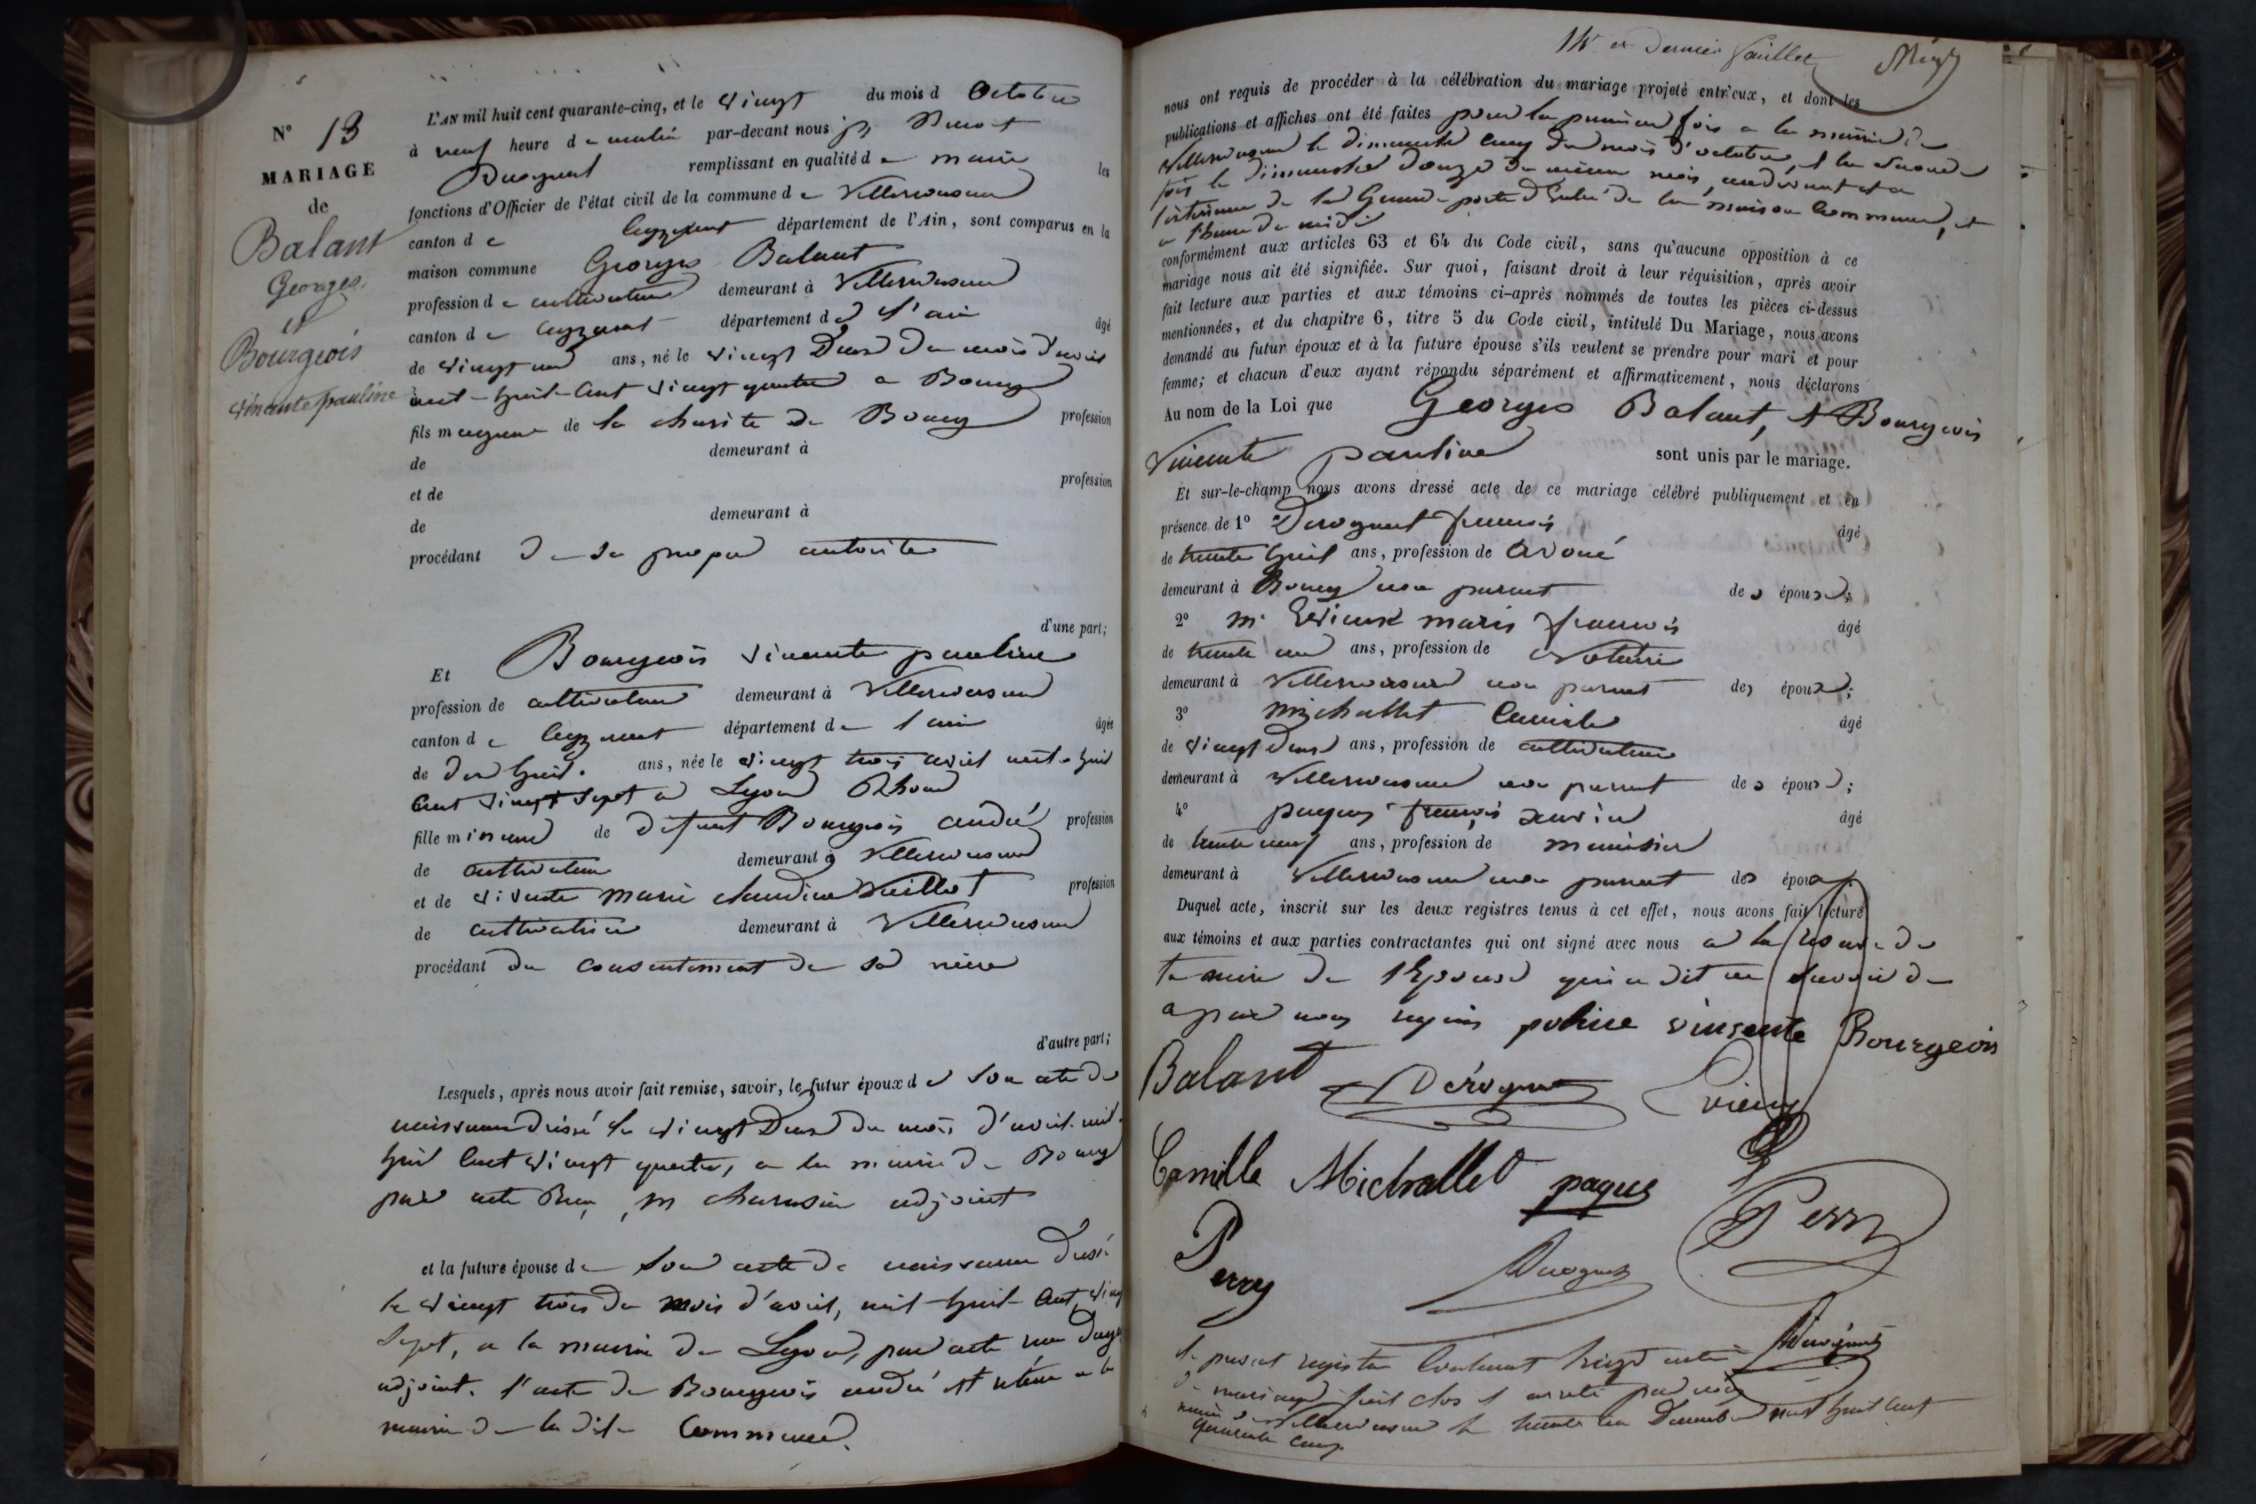 N° 13
MARIAGE
de
Balant
Georges
et
Bourgeois
vincente pauline
L'AN mil huit cent quarante-cinq, et le vingt du mois d octobre
à neuf heure de matin par-devant nous
remplissant en qualité de maire les
fonctions d'Officier de l'état civil de la commune de Villereversure
canton de Ceyzeriat département de l'Ain, sont comparus en la
maison commune Georges Balant
profession de cultivateur demeurant à Villereversure
canton de Ceyzeriat département de l'ain âgé
de vingt un ans, né le vingt Deux du mois d'avril
mil-huit-cent vingt quatre a Bourg
fils majeur de la charité de Bourg profession
de demeurant à
et de profession
de demeurant à
procédant de sa propre autorité
d'une part;
Et Bourgeois vincente pauline
profession de cultivateur demeurant à Villereversure
canton de Ceyzeriat département de l'ain âgée
de dix huit ans, née le vingt trois avril mil-huit
cent vingt sept a Lyon Rhone
fille mineure de defunt Bourgeois andré profession
de cultivateur demeurant à Villereversure
et de vivante marie claudine Vuillot profession
de cultivatrice demeurant à Villereversure
procédant du consentement de sa mère
d'autre part;
Lesquels, après nous avoir fait remise, savoir, le futur époux de son acte de
naissance dressé le vingt Deux du mois d'avril mil-
huit cent vingt quatre, a la mairie de Bourg
par acte m charassin adjoint
et la future épouse de son acte de naissance dressé
le vingt trois du mois d'avril, mil-huit-cent, vingt
Sept, a la mairie de Lyon, par acte
adjoint. l'acte de Bourgeois andré est retenu a la
mairie de la dite Commune.
14e et Dernier feuillet
nous ont requis de procéder à la célébration du mariage projeté entr'eux, et dont les
publications et affiches ont été faites pour la premiere fois a la mairie de
Villereversure le dimanche cinq du mois d'octobre, et la seconde
fois le dimanche douze du même mois, audevant et a
l'exterieur de la Grande porte d'Entrée de la maison Commune, et
a l'heure de midi
conformément aux articles 63 et 64 du Code civil, sans qu'aucune opposition à ce
mariage nous ait été signifiée. Sur quoi, faisant droit à leur réquisition, après avoir
fait lecture aux parties et aux témoins ci-après nommés de toutes les pièces ci-dessus
mentionnées, et du chapitre 6, titre 5 du Code civil, intitulé Du Mariage, nous avons
demandé au futur époux et à la future épouse s'ils veulent se prendre pour mari et pour
femme; et chacun d'eux ayant répondu séparément et affirmativement, nous déclarons
Au nom de la Loi que Georges Balant, et Bourgeois
Vincente pauline sont unis par le mariage.
Et sur-le-champ nous avons dressé acte de ce mariage célébré publiquement et en
présence de 1° Derognat francois âgé
de trente huit ans, profession de avoué
demeurant à Bourg non parent des époux;
2° m. marie francois âgé
de trente un ans, profession de Notaire
demeurant à Villereversure non parent des époux;
3° Michallet Camile âgé
de vingt deux ans, profession de cultivateur
demeurant à Villereversure non parent des époux;
4° paques françois xavier âgé
de trente neuf ans, profession de menuisier
demeurant à Villereversure non parent des époux
Duquel acte, inscrit sur les deux registres tenus à cet effet, nous avons fait lecture
aux témoins et aux parties contractantes qui ont signé avec nous a la réserve de
la mere de l'Epouse qui a dit ne savoir de
apar nous requis poline vinsente Bourgeois
Balant Derognat
Camille Michallet paques
Perry Derognat
le present registre contenant treize actes
de mariage fait clos et arreté par nous
maire de Villereversure le trente un Decembre mil huit cent
quarante cinq